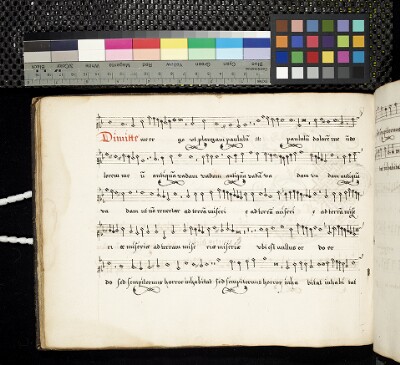 Blue Cyan Green Yellow Red Magenta White 3/Color Black
Dimitte me er go ut plangam paululū ii paululū dolorē me ūdo
lorem me ū antequā vadam vadam antequā vadā va dam va dam antequā
va dam et nō revertar ad terrā miseri e ad terrā miseri e ad terrā mise
ri e miserie ad terram mise rie miserie ubi est nullus or do or
do sed sempiternus horror inhabitat sed sempiternus horror inha bitat inhabi tat